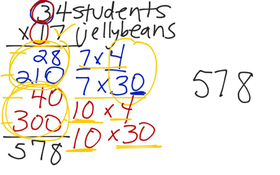 34 students
x 17 jellybeans
28 7 x 4
210 7 x 30
40 10 x 4
300 10 x 30
578
578